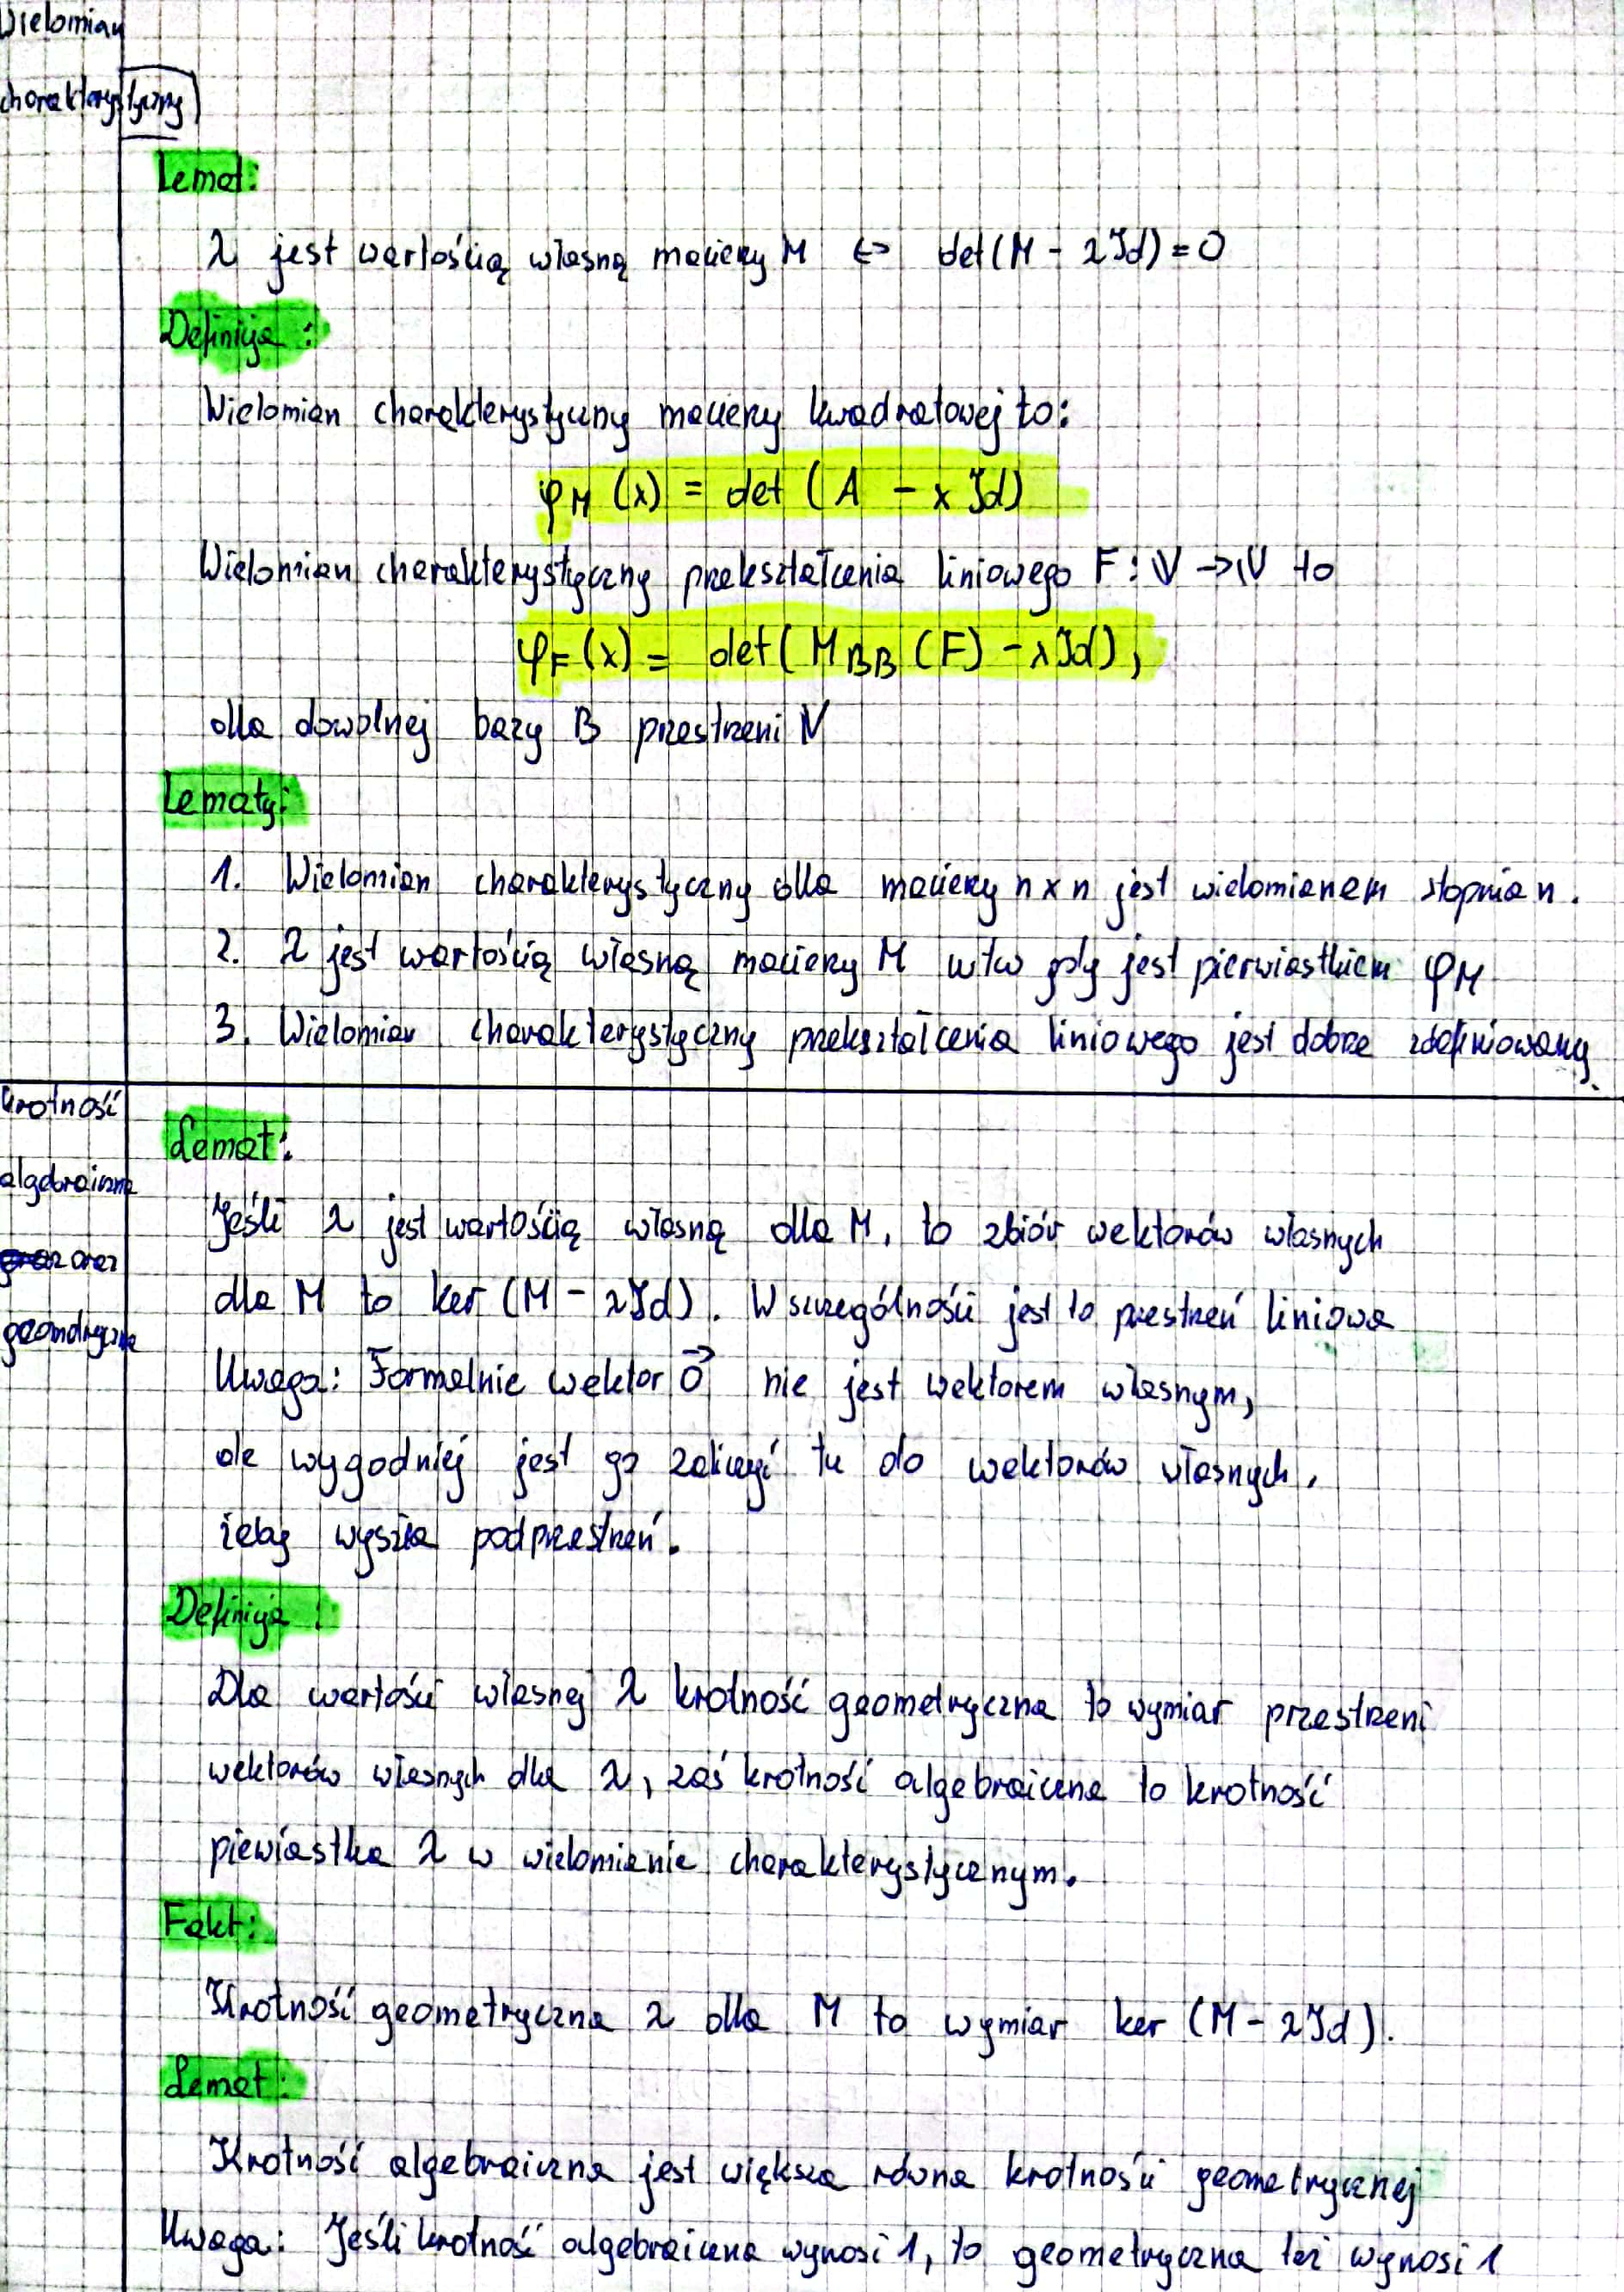 Wielomian
charakterystyczny
Lemat:
λ jest wartością własną macierzy M ⇔ det(M - λId) = 0
Definicja:
Wielomian charakterystyczny macierzy kwadratowej to:
φ_M (x) = det (A - x Id)
Wielomian charakterystyczny przekształcenia liniowego F: V → V to
φ_F (x) = det( M_BB (F) - λId),
dla dowolnej bazy B przestrzeni V
Lematy:
1. Wielomian charakterystyczny dla macierzy n x n jest wielomianem stopnia n.
2. λ jest wartością własną macierzy M wtw gdy jest pierwiastkiem φ_M
3. Wielomian charakterystyczny przekształcenia liniowego jest dobrze zdefiniowany.
Krotność
algebraiczna
oraz
geometryczna
Lemat:
Jeśli λ jest wartością własną dla M, to zbiór wektorów własnych
dla M to ker (M - λId). W szczególności jest to przestrzeń liniowa
Uwaga: Formalnie wektor 0⃗ nie jest wektorem własnym,
ale wygodniej jest go zaliczyć tu do wektorów własnych,
żeby wyszła podprzestrzeń.
Definicja:
Dla wartości własnej λ krotność geometryczna to wymiar przestrzeni
wektorów własnych dla λ, zaś krotność algebraiczna to krotność
piewiastka λ w wielomianie charakterystycznym.
Fakt:
Krotność geometryczna λ dla M to wymiar ker (M - λId).
Lemat:
Krotność algebraiczna jest większa równa krotności geometrycznej
Uwaga: Jeśli krotność algebraiczna wynosi 1, to geometryczna też wynosi 1